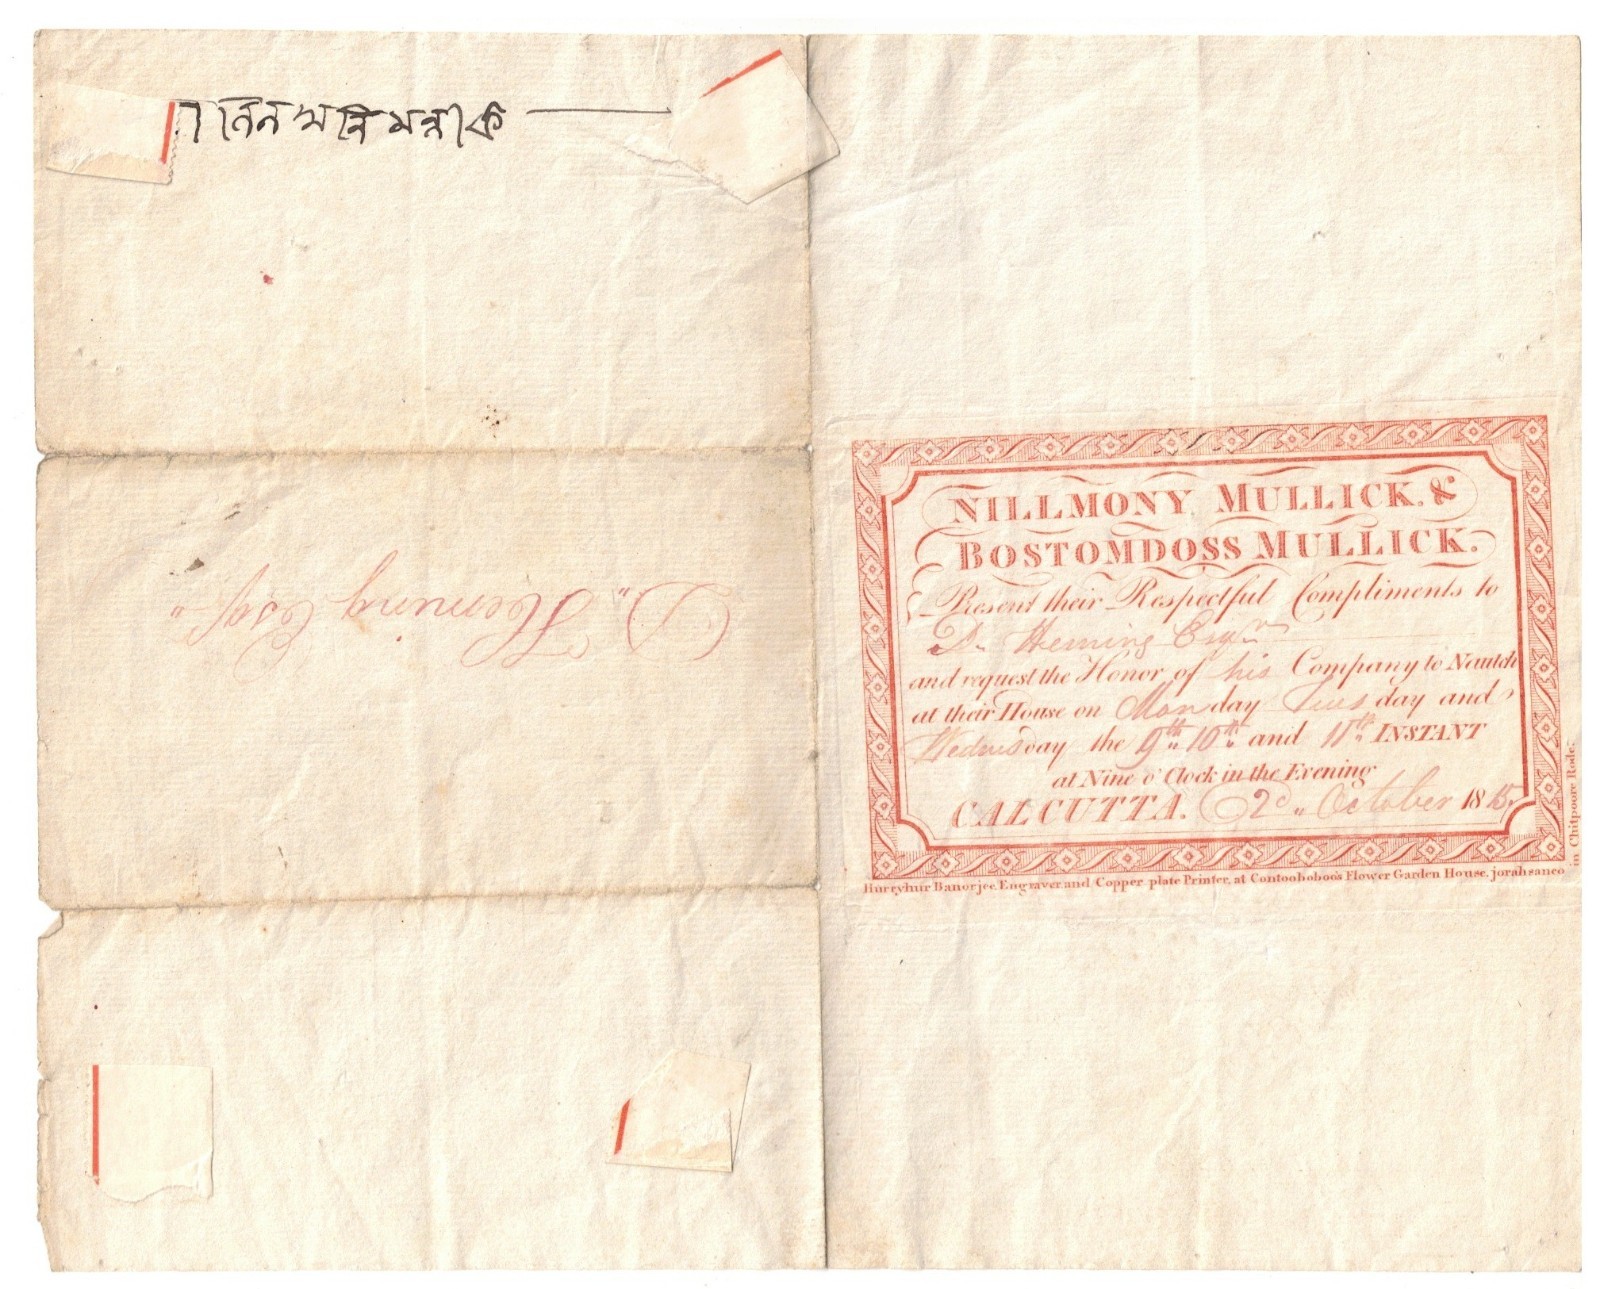 NILLMONY MULLICK. &
BOSTOMDOSS MULLICK.
Present their Respectful Compliments to
D. Heming Esqr
and request the Honor of his Company to Nautch
at their House on Monday Tuesday and
Wednesday the 9th 10th and 11th INSTANT
at Nine o'Clock in the Evening
CALCUTTA. 2d October 1815.
Hurryhur Banorjee. Engraver and Copper plate Printer, at Contooboboo's Flower Garden House. jorahsanco
in Chitpoore Rode.
D" Heming Esqr